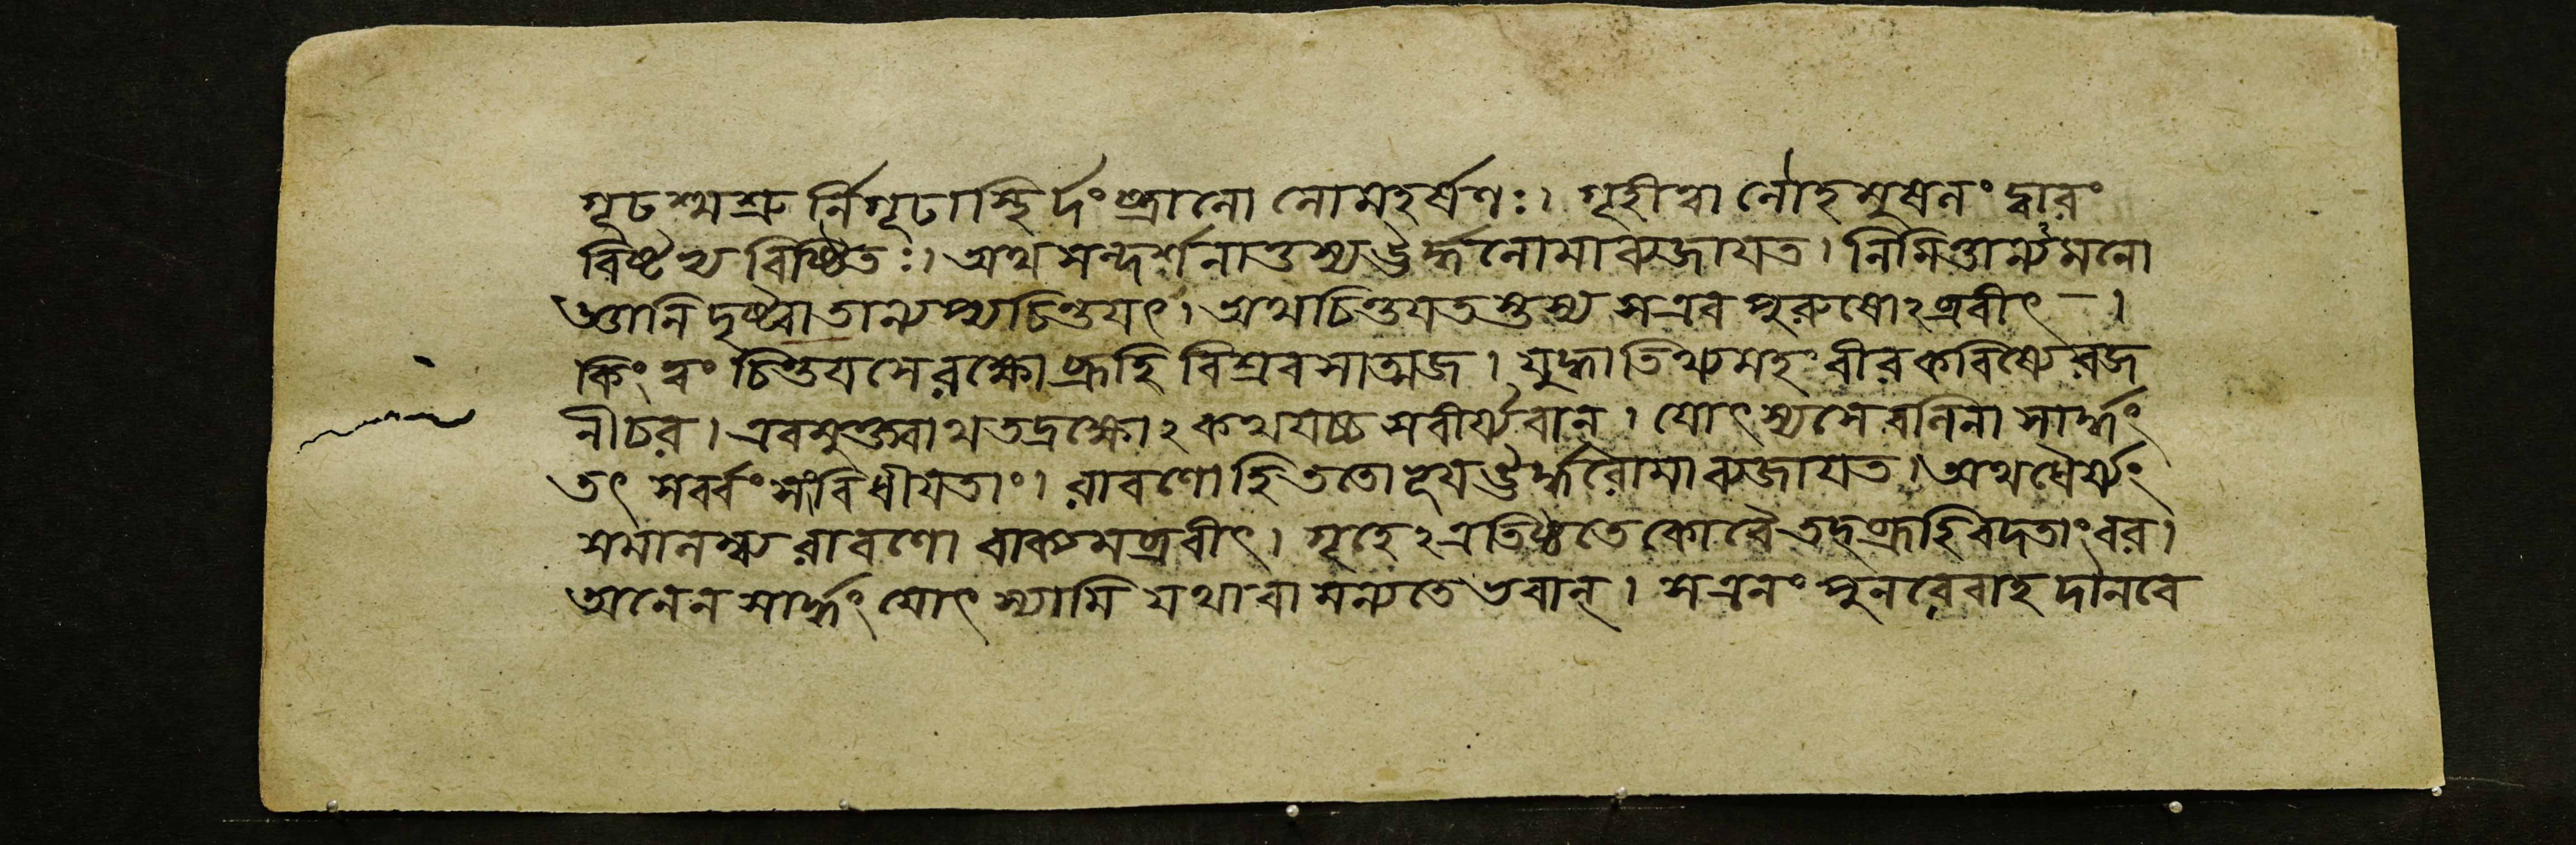 গূঢশ্মশ্রুর্নিগূঢাস্থির্দংষ্ট্রানো লোমহর্ষণঃ। গৃহীত্বা লৌহমুষলং দ্বারং
বিষ্টভ্য বিষ্ঠিতঃ। অথ সন্দর্শনাত্তস্য ঊর্দ্ধলোমা ব্যজায়ত। নিমিত্তান্যমনো
জ্ঞানি দৃষ্ট্বা তান্যপ্যচিন্তয়ৎ। অথ চিন্তয়তস্তস্য স এব পুরুষোঽব্রবীৎ।
কিং ত্বং চিন্তয়সে রক্ষো ব্রূহি বিশ্রবসাত্মজ। যুদ্ধাতিথ্যমহং বীর করিষ্যে রজ
নীচর। এবমুক্ত্বাথ তদ্রক্ষোঽকথয়চ্চ স বীর্য্যবান্। যোৎস্যসে বলিনা সার্দ্ধং
তৎ সর্ব্বং সংবিধীয়তাং। রাবণো হি ততো ভূয় ঊর্দ্ধরোমা ব্যজায়ত। অথ ধৈর্য্যং
সমালম্ব্য রাবণো বাক্যমব্রবীৎ। গৃহেঽত্র তিষ্ঠতে কো বৈ তদ্ব্রূহি বদতাং বর।
অনেন সার্দ্ধং যোৎস্যামি যথা বা মন্যতে ভবান্। স এনং পুনরেবাহ দানবে